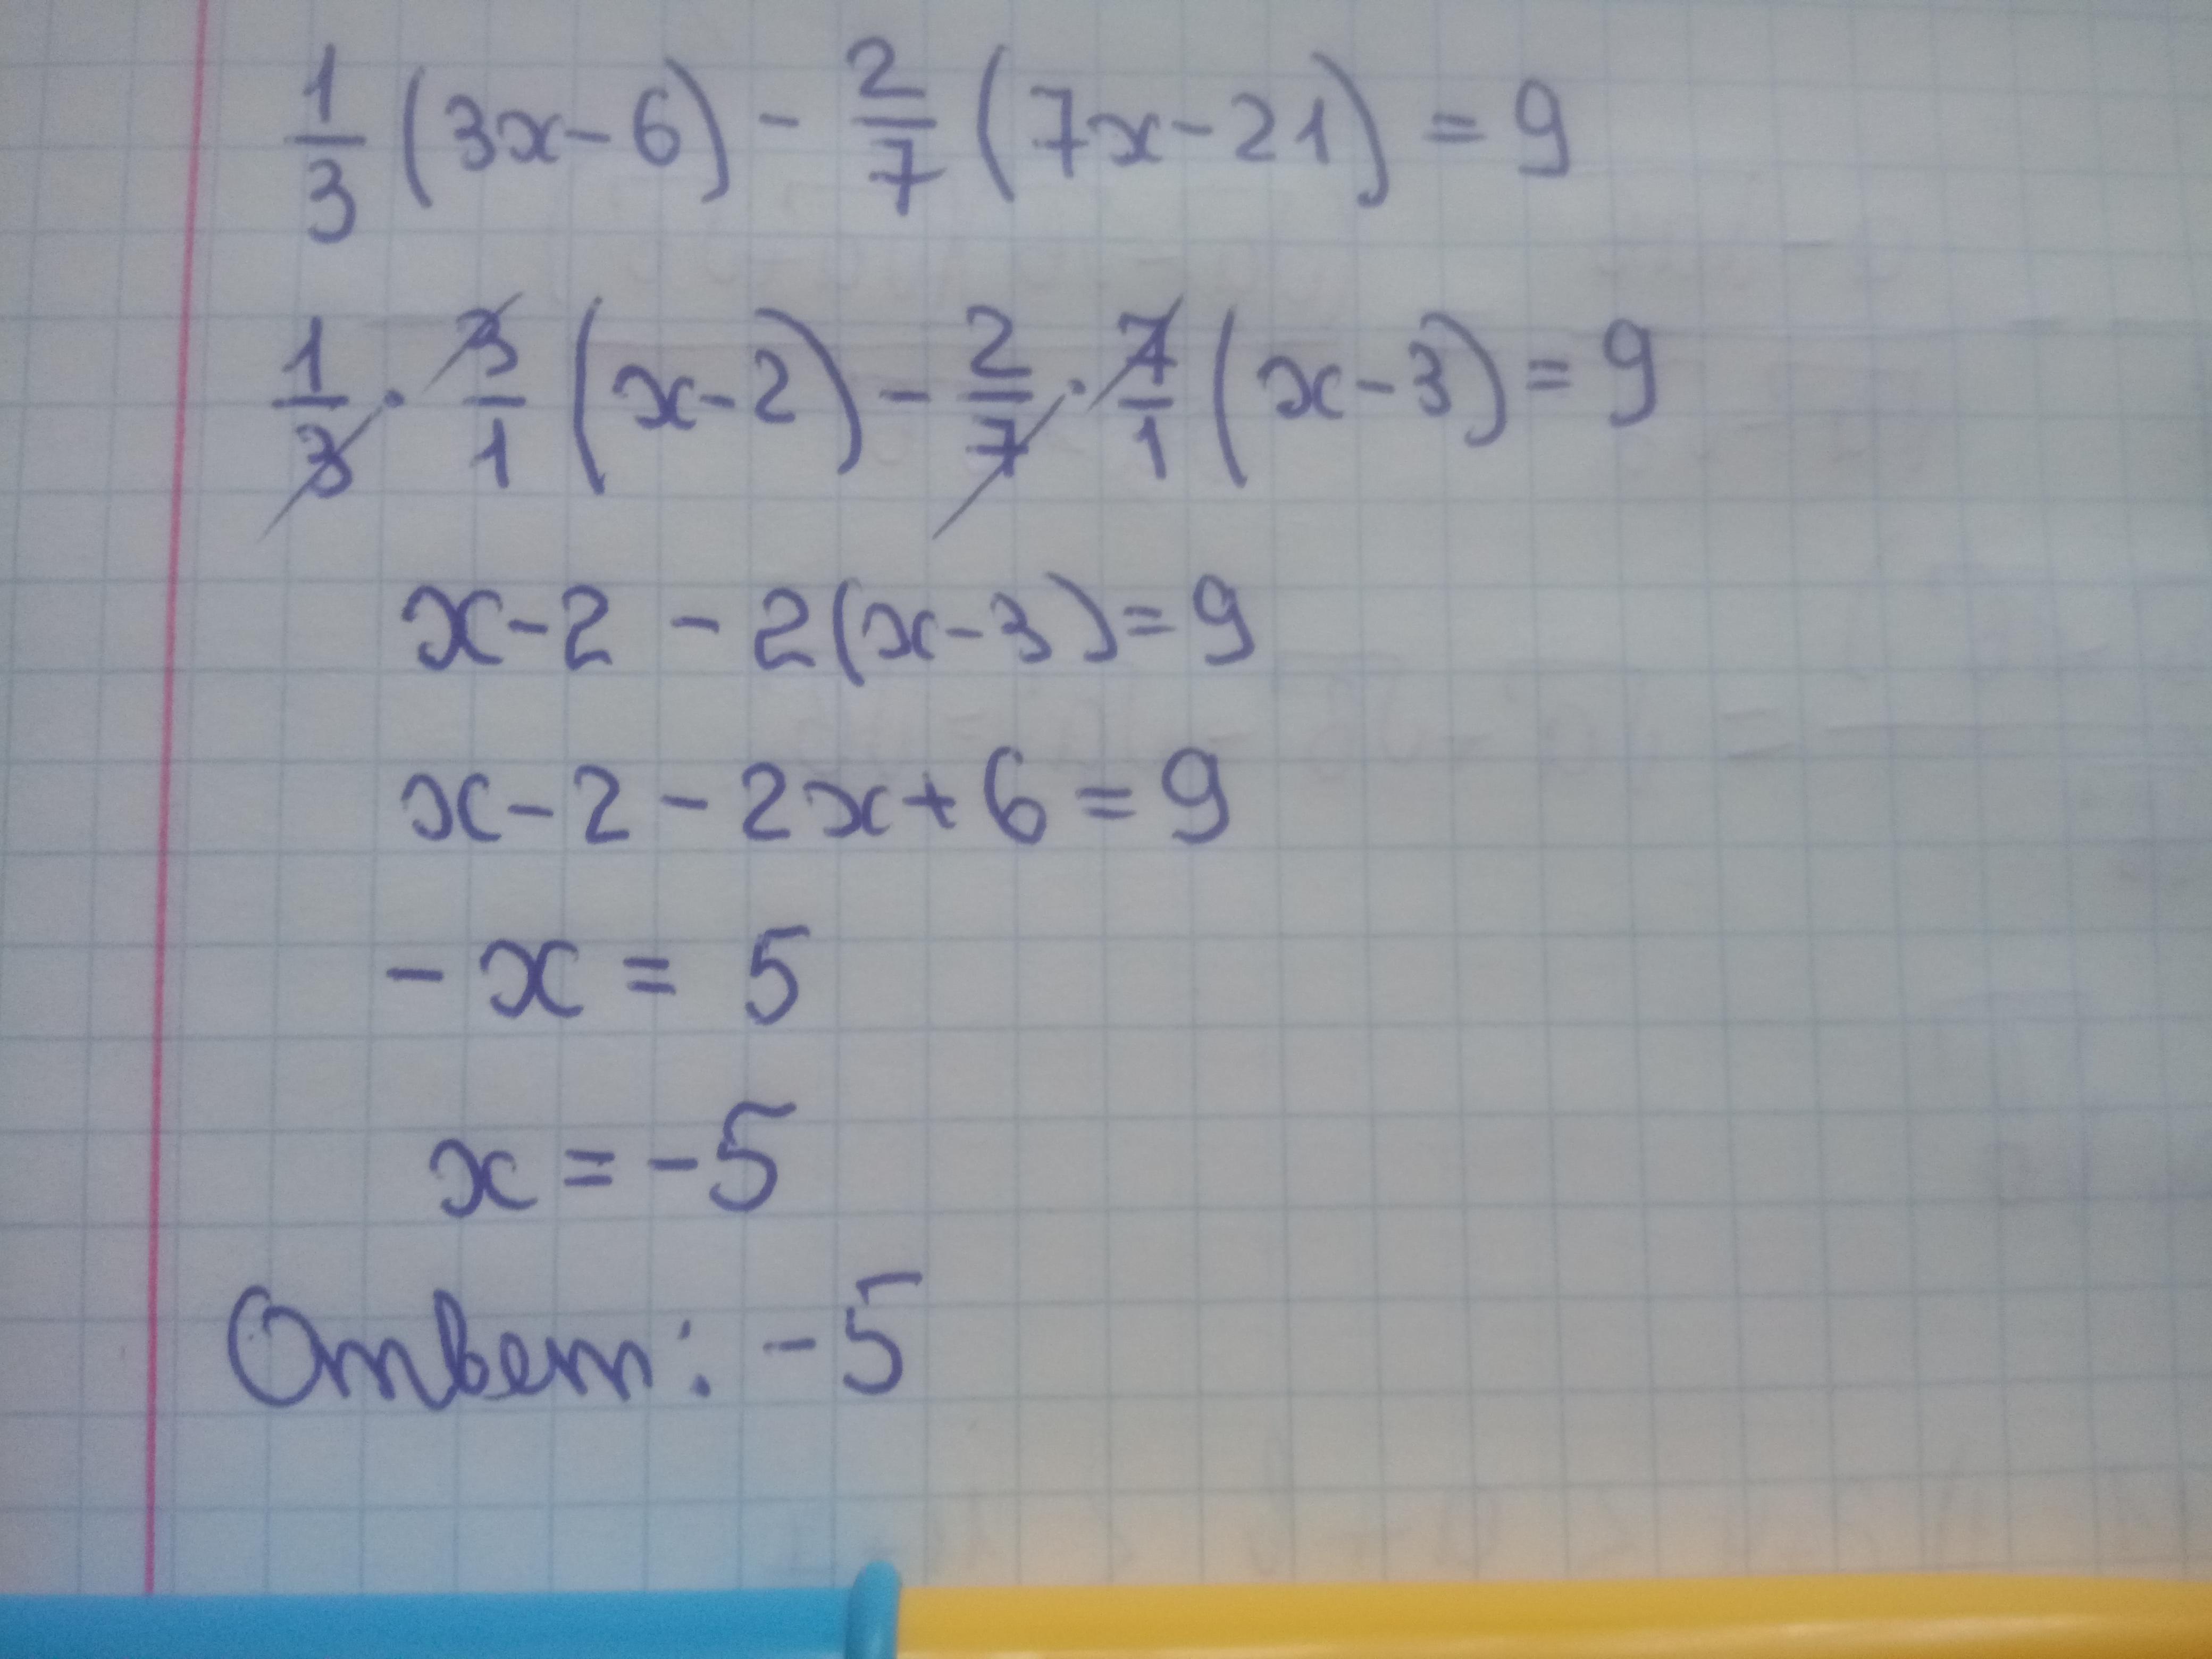 1/3 (3x - 6) - 2/7 (7x - 21) = 9
1/3 · 3/1 (x - 2) - 2/7 · 7/1 (x - 3) = 9
x - 2 - 2(x - 3) = 9
x - 2 - 2x + 6 = 9
- x = 5
x = -5
Ответ: -5